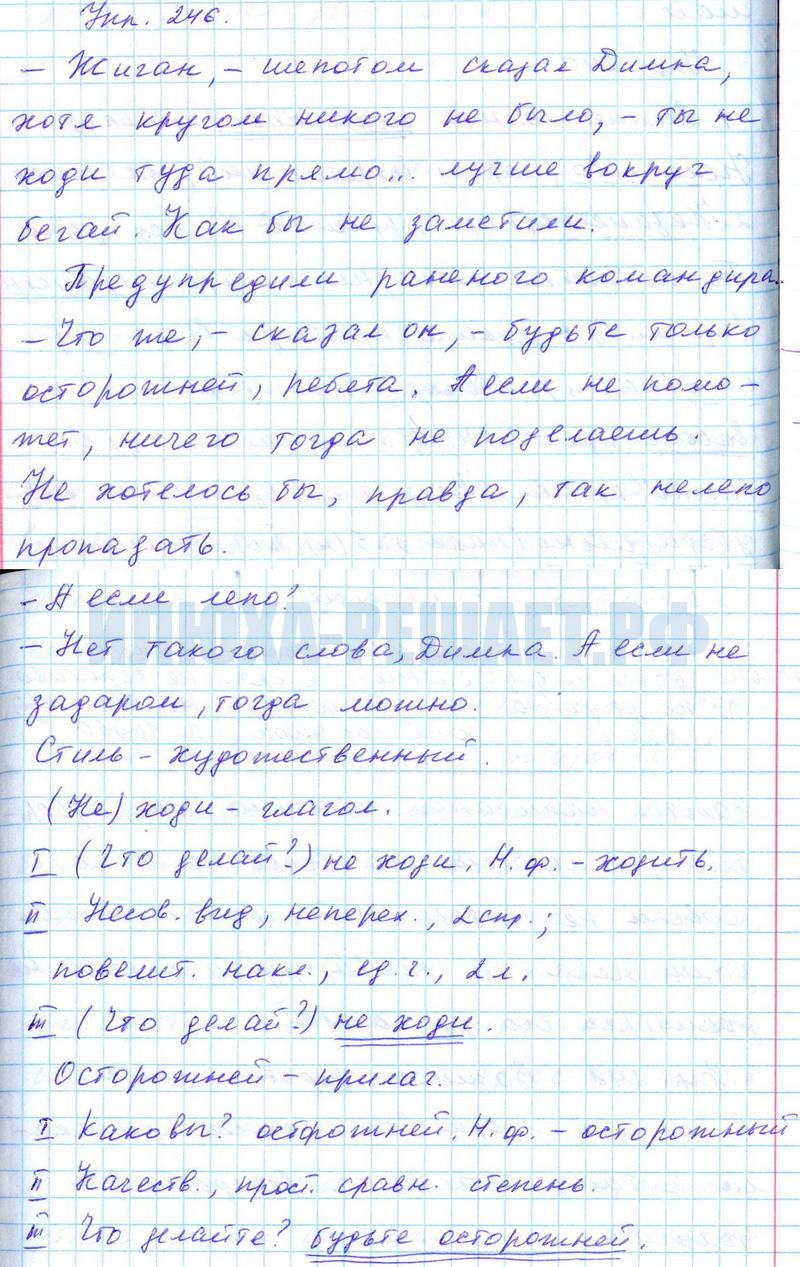 Упр. 246.
– Жиган, – шепотом сказал Димка,
хотя кругом никого не было, – ты не
ходи туда прямо... лучше вокруг
бегай. Как бы не заметили.
Предупредили раненого командира.
– Что же, – сказал он, – будьте только
осторожней, ребята. А если не помо-
жет, ничего тогда не поделаешь.
Не хотелось бы, правда, так нелепо
пропадать.
– А если лепо?
ИЛЮХА.РЕШАЕТ.РФ
– Нет такого слова, Димка. А если не
задаром, тогда можно.
Стиль – художественный.
(Не) ходи – глагол.
I (Что делай?) не ходи. Н. ф. – ходить.
II Несов. вид, неперех., 2 спр.;
повелит. накл., ед. ч., 2 л.
III (Что делай?) не ходи.
Осторожней – прилаг.
I Каковы? осторожней. Н. ф. – осторожный
II Качеств., прост. сравн. степень.
III Что делайте? будьте осторожней.